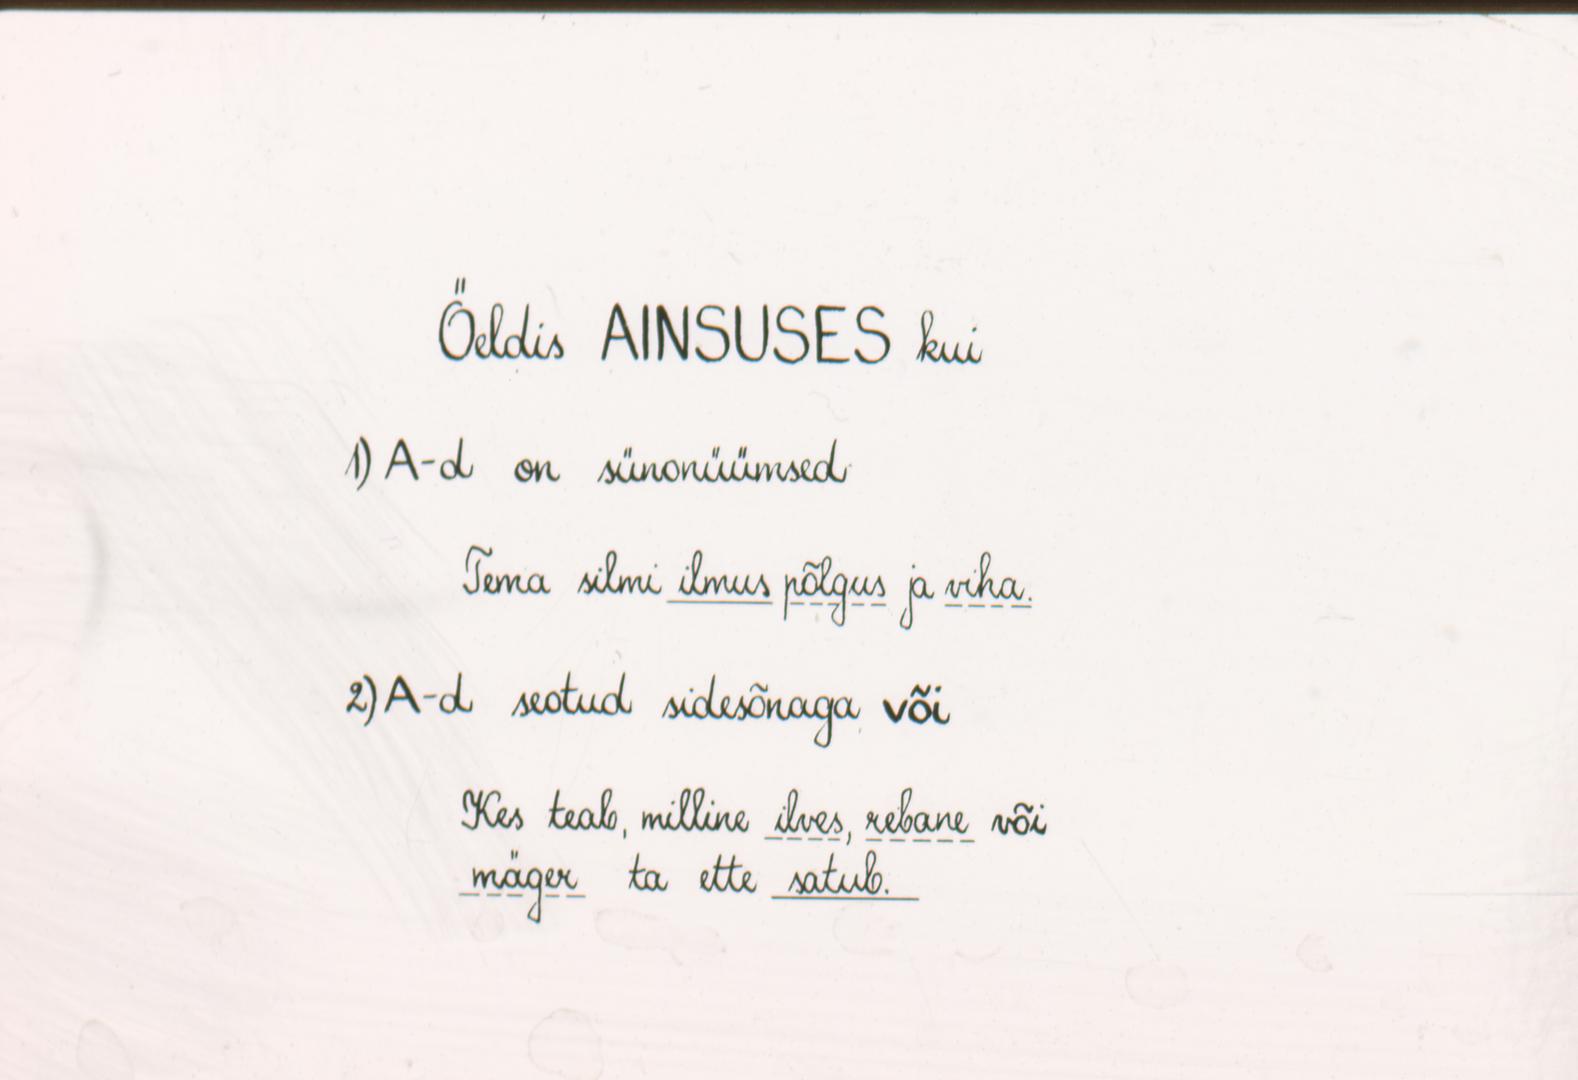 Öeldis AINSUSES kui
1) A-d on sünonüümsed
Tema silmi ilmus põlgus ja viha.
2) A-d seotud sidesõnaga või
Kes teab, milline ilves, rebane või
mäger ta ette satub.